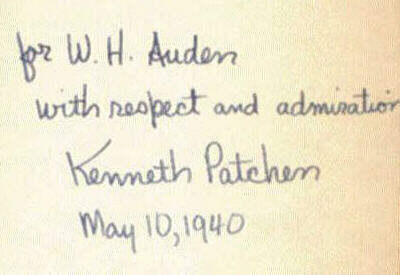 for W. H. Auden
with respect and admiration
Kenneth Patchen
May 10, 1940